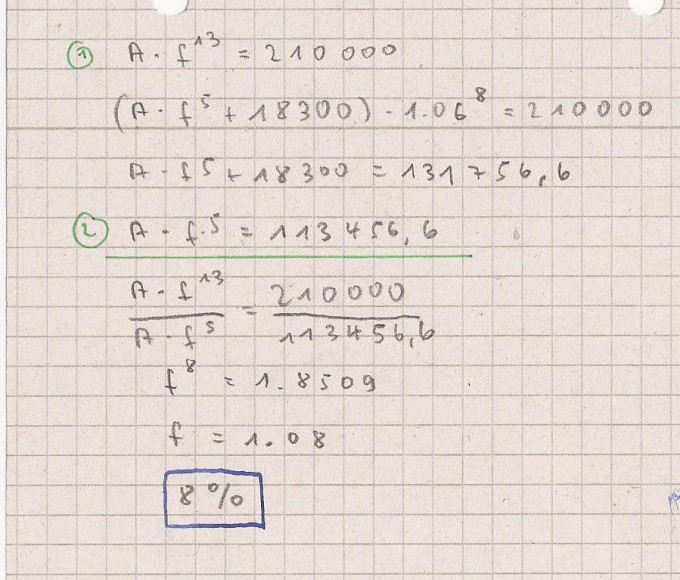 ① A · f¹³ = 210 000
(A · f⁵ + 18300) · 1.06⁸ = 210000
A · f⁵ + 18300 = 131756,6
② A · f·⁵ = 113456,6
A · f¹³ / A · f⁵ = 210000 / 113456,6
f⁸ = 1.8509
f = 1.08
8%